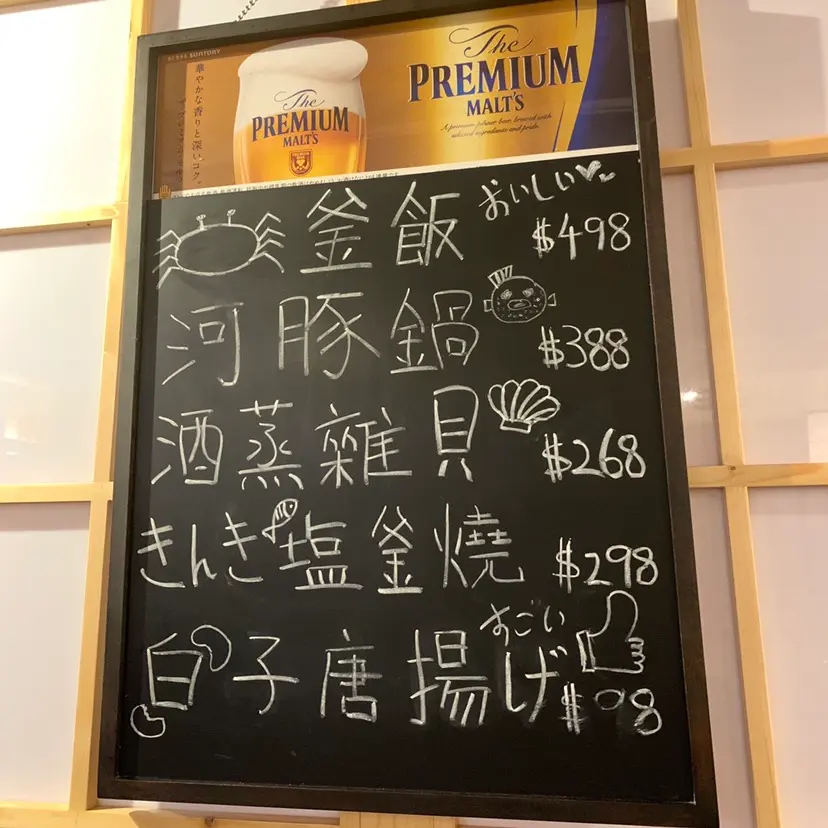 SUNTORY
華やかな香りと深いコク。
The
PREMIUM
MALT'S
The
PREMIUM
MALT'S
A premium pilsner beer, brewed with
selected ingredients and pride.
釜飯 おいしい♥
$498
河豚鍋
$388
酒蒸雜貝
$268
きんき塩釜燒
$298
白子唐揚げ すごい
$98